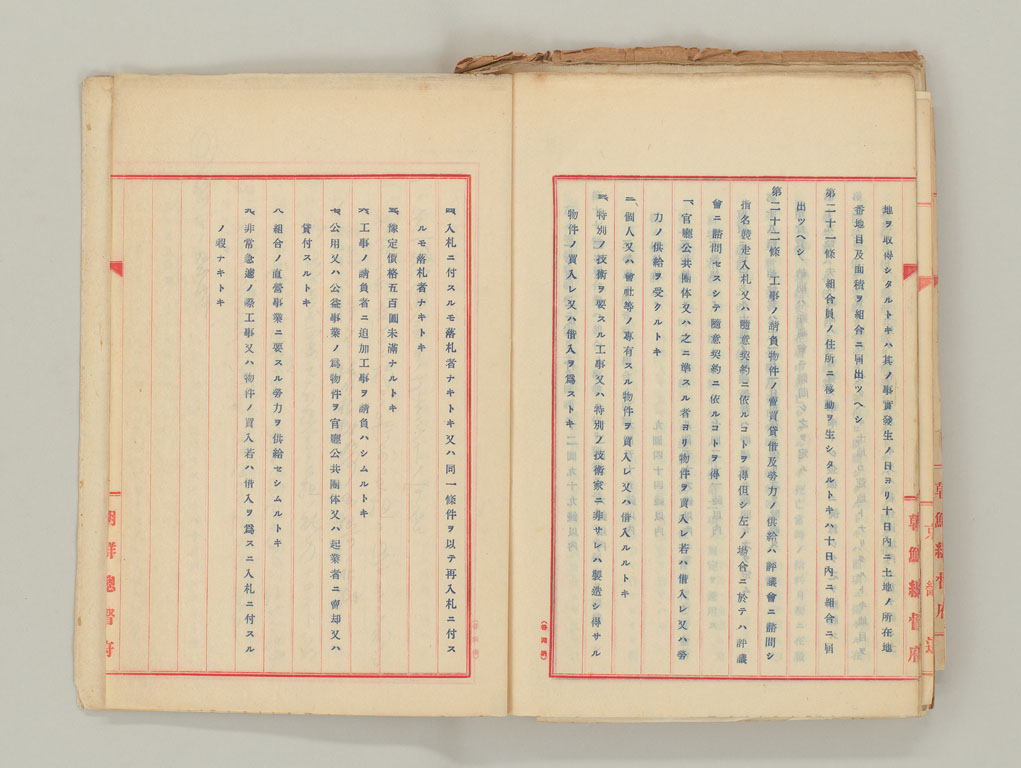 地ヲ取得シタルトキハ其ノ事實發生ノ日ヨリ十日內ニ土地ノ所在地
番地目及面積ヲ組合ニ屆出ツヘシ
第二十一條 組合員ノ住所ニ移動ヲ生シタルトキハ十日內ニ組合ニ屆
出ツヘシ
第二十二條 工事ノ請負物件ノ賣買貸借及勞力ノ供給ハ評議會ニ諮問シ
指名競走入札又ハ隨意契約ニ依ルコトヲ得但シ左ノ場合ニ於テハ評議
會ニ諮問セスシテ隨意契約ニ依ルコトヲ得
一、官廳公共團体又ハ之ニ準スル者ヨリ物件ヲ買入レ若ハ借入レ又ハ勞
力ノ供給ヲ受クルトキ
二、個人又ハ會社等ノ專有スル物件ヲ買入レ又ハ借入ルルトキ
三、特別ノ技術ヲ要スル工事又ハ特別ノ技術家ニ非サレハ製造シ得サル
物件ノ買入レ又ハ借入ヲ爲ストキ
朝鮮總督府
四、入札ニ付スルモ落札者ナキトキ又ハ同一條件ヲ以テ再入札ニ付ス
ルモ落札者ナキトキ
五、豫定價格五百圓未滿ナルトキ
六、工事ノ請負者ニ追加工事ヲ請負ハシムルトキ
七、公用又ハ公益事業ノ爲物件ヲ官廳公共團体又ハ起業者ニ賣却又ハ
貸付スルトキ
八、組合ノ直營事業ニ要スル勞力ヲ供給セシムルトキ
九、非常急遽ノ際工事又ハ物件ノ買入若ハ借入ヲ爲スニ入札ニ付スル
ノ暇ナキトキ
朝鮮總督府